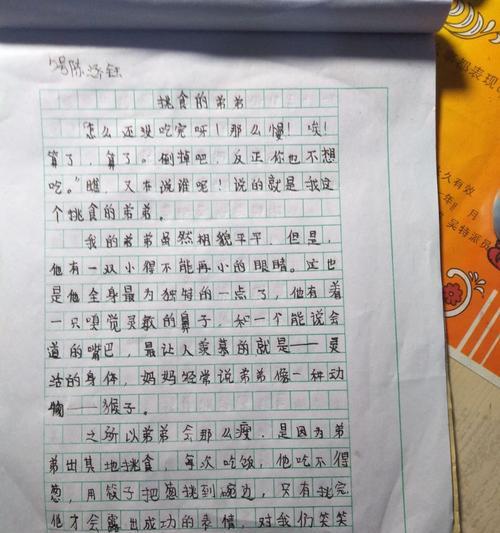 陈
挑食的弟弟
怎么还没吃完呀！那么慢！唉！
算了，算了。倒掉吧，反正你也不想
吃。”瞧，又在说谁呢！说的就是我这
个挑食的弟弟。
我的弟弟虽然相貌平平，但是，
他有一双小得不能再小的眼睛。这也
是他全身最为独特的一点了，他有着
一只嗅觉灵敏的鼻子，和一个能说会
道的嘴巴，最让人羡慕的就是——灵
活的身体，妈妈经常说弟弟像一种动
物——猴子。
之所以弟弟会那么瘦，是因为弟
弟出其地挑食，每次吃饭，他吃不得
葱，用筷子把葱挑到碗边，只有挑完
他才会露出成功的表情，对我们笑笑
都表现
久有效
年 月
吴特派员